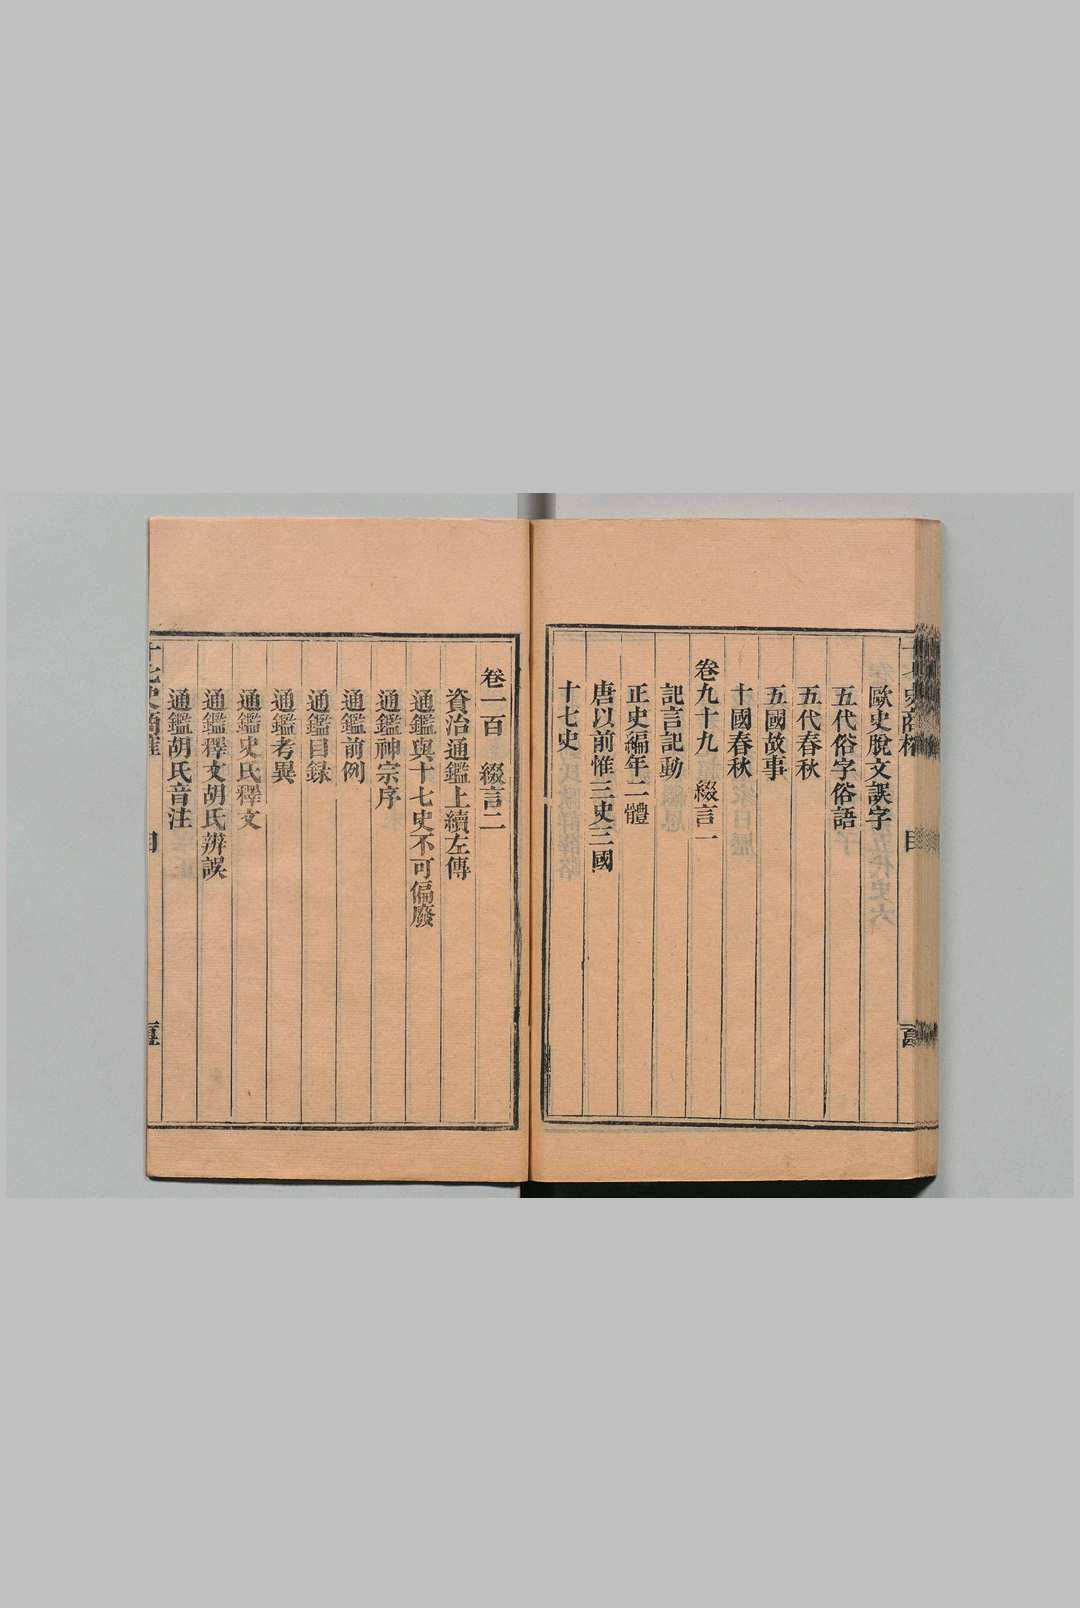 歐史脫文誤字
五代俗字俗語
五代春秋
五國故事
十國春秋
卷九十九　綴言一
記言記動
正史編年二體
唐以前惟三史三國
十七史
卷一百　綴言二
資治通鑑上續左傳
通鑑與十七史不可偏廢
通鑑神宗序
通鑑前例
通鑑目録
通鑑考異
通鑑史氏釋文
通鑑釋文胡氏辨誤
通鑑胡氏音注